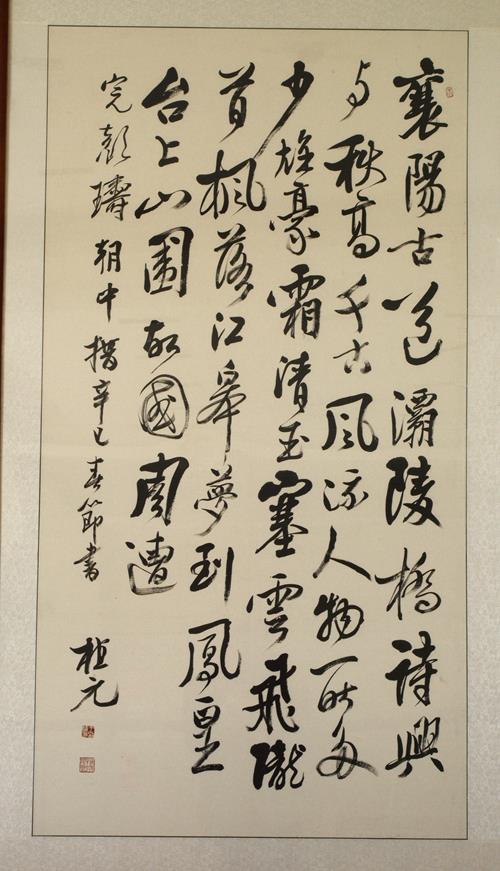 襄陽古道灞陵橋詩興
与秋高千古風流人物一時多
少雄豪霜清玉塞雲飛隴
首楓落江皋夢到鳳皇
台上山圍故國周遭
完顏璹朝中措辛巳春節書
植元